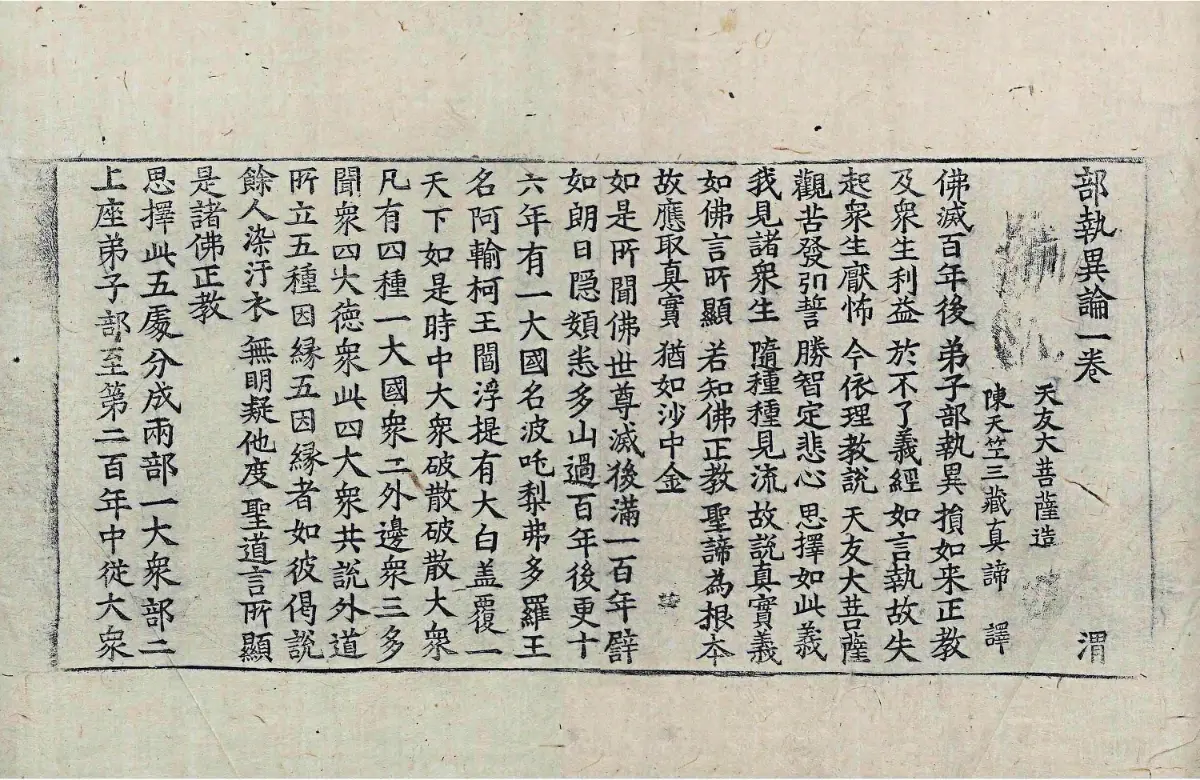 部執異論一卷 渭
天友大菩薩造
陳天竺三藏真諦 譯
佛滅百年後 弟子部執異 損如来正教
及衆生利益 於不了義經 如言執故失
起衆生厭怖 今依理教說 天友大菩薩
觀苦發弘誓 勝智定悲心 思擇如此義
我見諸衆生 隨種種見流 故說真實義
如佛言所顯 若知佛正教 聖諦為根本
故應取真實 猶如沙中金
如是所聞佛世尊滅後滿一百年譬
如朗日隱頞悉多山過百年後更十
六年有一大國名波吒梨弗多羅王
名阿輸柯王閻浮提有大白盖覆一
天下如是時中大衆破散破散大衆
凡有四種一大國衆二外邊衆三多
聞衆四大德衆此四大衆共說外道
所立五種因緣五因緣者如彼偈說
餘人染汙衣 無明疑他度 聖道言所顯
是諸佛正教
思擇此五處分成兩部一大衆部二
上座弟子部至第二百年中從大衆